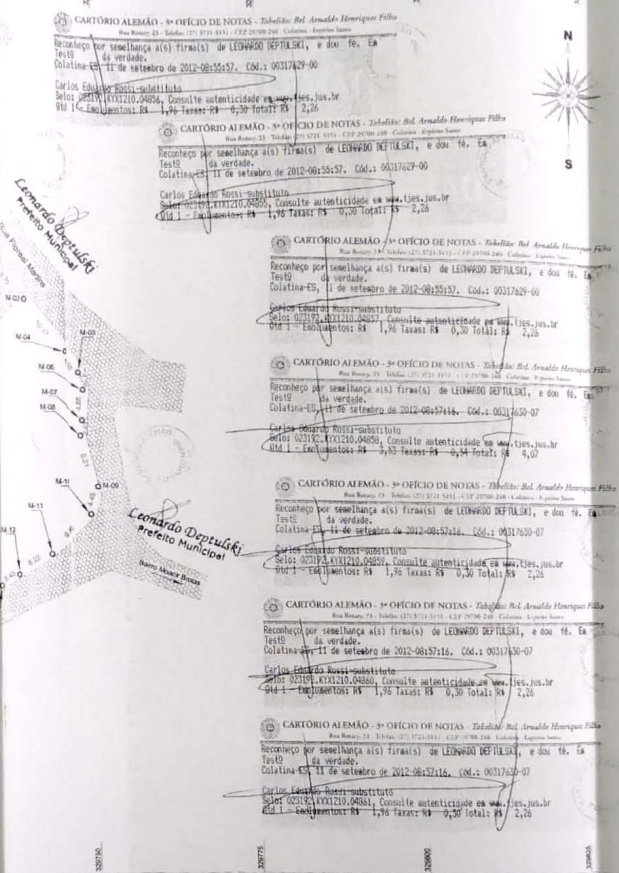 CARTÓRIO ALEMÃO - 3º OFÍCIO DE NOTAS - Tabelião: Bel. Arnaldo Henriques Filho
Rua Rotary, 23 - Telefax (27) 3721-5151 - CEP 29700-260 - Colatina - Espírito Santo
Reconheço por semelhança a(s) firma(s) de LEONARDO DEPTULSKI, e dou fé. Em
Testº da verdade.
Colatina-ES, 11 de setembro de 2012-08:55:57. Cód.: 00317629-00
Carlos Eduardo Rossi-substituto
Selo: 023192.KYX1210.04856, Consulte autenticidade em www.tjes.jus.br
Qtd 1 - Emolumentos: R$ 1,96 Taxas: R$ 0,30 Total: R$ 2,26
N
S
CARTÓRIO ALEMÃO - 3º OFÍCIO DE NOTAS - Tabelião: Bel. Arnaldo Henriques Filho
Rua Rotary, 23 - Telefax (27) 3721-5151 - CEP 29700-260 - Colatina - Espírito Santo
Reconheço por semelhança a(s) firma(s) de LEONARDO DEPTULSKI, e dou fé. Em
Testº da verdade.
Colatina-ES, 11 de setembro de 2012-08:55:57. Cód.: 00317629-00
Carlos Eduardo Rossi-substituto
Selo: 023192.KYX1210.04855, Consulte autenticidade em www.tjes.jus.br
Qtd 1 - Emolumentos: R$ 1,96 Taxas: R$ 0,30 Total: R$ 2,26
Leonardo Deptulski
Prefeito Municipal
CARTÓRIO ALEMÃO - 3º OFÍCIO DE NOTAS - Tabelião: Bel. Arnaldo Henriques Filho
Rua Rotary, 23 - Telefax (27) 3721-5151 - CEP 29700-260 - Colatina - Espírito Santo
Reconheço por semelhança a(s) firma(s) de LEONARDO DEPTULSKI, e dou fé. Em
Testº da verdade.
Colatina-ES, 11 de setembro de 2012-08:55:57. Cód.: 00317629-00
Carlos Eduardo Rossi-substituto
Selo: 023192.KYX1210.04857, Consulte autenticidade em www.tjes.jus.br
Qtd 1 - Emolumentos: R$ 1,96 Taxas: R$ 0,30 Total: R$ 2,26
M-03
M-04
M-05
M-06
M-07
M-08
CARTÓRIO ALEMÃO - 3º OFÍCIO DE NOTAS - Tabelião: Bel. Arnaldo Henriques Filho
Rua Rotary, 23 - Telefax (27) 3721-5151 - CEP 29700-260 - Colatina - Espírito Santo
Reconheço por semelhança a(s) firma(s) de LEONARDO DEPTULSKI, e dou fé. Em
Testº da verdade.
Colatina-ES, 11 de setembro de 2012-08:57:16. Cód.: 00317630-07
Carlos Eduardo Rossi-substituto
Selo: 023192.KYX1210.04858, Consulte autenticidade em www.tjes.jus.br
Qtd 1 - Emolumentos: R$ 3,53 Taxas: R$ 0,54 Total: R$ 4,07
M-09
M-10
M-11
M-12
Leonardo Deptulski
Prefeito Municipal
Bairro Moacir Brotas
CARTÓRIO ALEMÃO - 3º OFÍCIO DE NOTAS - Tabelião: Bel. Arnaldo Henriques Filho
Rua Rotary, 23 - Telefax (27) 3721-5151 - CEP 29700-260 - Colatina - Espírito Santo
Reconheço por semelhança a(s) firma(s) de LEONARDO DEPTULSKI, e dou fé. Em
Testº da verdade.
Colatina-ES, 11 de setembro de 2012-08:57:16. Cód.: 00317630-07
Carlos Eduardo Rossi-substituto
Selo: 023192.KYX1210.04859, Consulte autenticidade em www.tjes.jus.br
Qtd 1 - Emolumentos: R$ 1,96 Taxas: R$ 0,30 Total: R$ 2,26
CARTÓRIO ALEMÃO - 3º OFÍCIO DE NOTAS - Tabelião: Bel. Arnaldo Henriques Filho
Rua Rotary, 23 - Telefax (27) 3721-5151 - CEP 29700-260 - Colatina - Espírito Santo
Reconheço por semelhança a(s) firma(s) de LEONARDO DEPTULSKI, e dou fé. Em
Testº da verdade.
Colatina-ES, 11 de setembro de 2012-08:57:16. Cód.: 00317630-07
Carlos Eduardo Rossi-substituto
Selo: 023192.KYX1210.04860, Consulte autenticidade em www.tjes.jus.br
Qtd 1 - Emolumentos: R$ 1,96 Taxas: R$ 0,30 Total: R$ 2,26
CARTÓRIO ALEMÃO - 3º OFÍCIO DE NOTAS - Tabelião: Bel. Arnaldo Henriques Filho
Rua Rotary, 23 - Telefax (27) 3721-5151 - CEP 29700-260 - Colatina - Espírito Santo
Reconheço por semelhança a(s) firma(s) de LEONARDO DEPTULSKI, e dou fé. Em
Testº da verdade.
Colatina-ES, 11 de setembro de 2012-08:57:16. Cód.: 00317630-07
Carlos Eduardo Rossi-substituto
Selo: 023192.KYX1210.04861, Consulte autenticidade em www.tjes.jus.br
Qtd 1 - Emolumentos: R$ 1,96 Taxas: R$ 0,30 Total: R$ 2,26
329750
329775
329800
329825